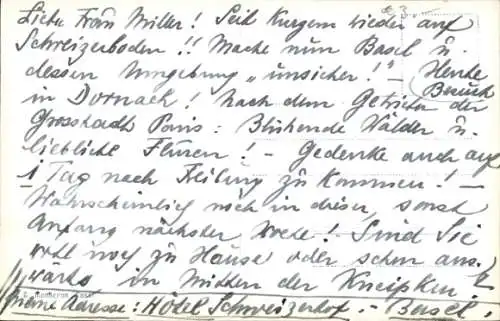 Liebe Frau Miller! Seit Kurzem wieder auf
Schweizerboden!! Mache nun Basel u.
dessen Umgebung „unsicher!" – Heute
Besuch
in Dornach! Nach dem Getriebe der
Grosstadt Paris: Blühende Wälder u.
liebliche Fluren! – Gedenke auch auf
1 Tag nach Freiburg zu kommen! –
Wahrscheinlich noch in dieser, sonst
Anfang nächster Woche! Sind Sie
wohl noch zu Hause oder schon aus-
warts in Mitten der Kneipken?
Meine Adresse: Hôtel Schweizerhof. – Basel.